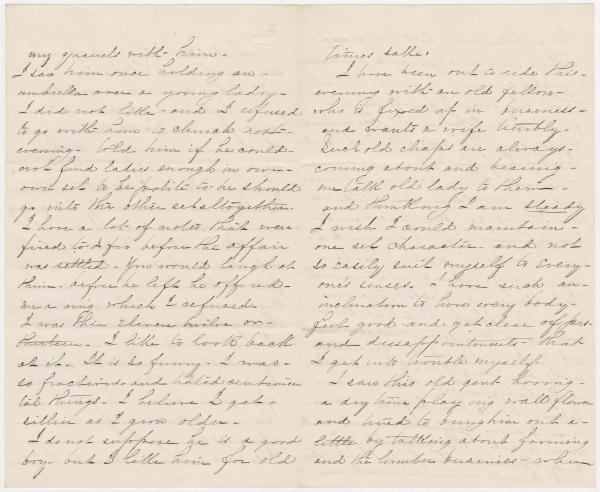 my quarels with him -
I saw him once holding an -
umbrella over a young lady -
I did not like - and I refused
to go with him to church next -
evening - told him if he could -
not find ladies enough in own -
own set to be polite to he should
go into the other set altogether.
I have a lot of notes that were
fired to & fro before the affair
was settled - You would laugh at
them - before he left he offered -
me a ring which I refused.
I was then eleven twelve or -
thirteen. I like to look back
at it. It is so funny - I was -
so fractious and hated sentimen
tal things. I believe I get -
sillier as I grow older -
I do not suppose he is a good
boy - but I like him for old
times sake.
I have been out to ride this -
evening with an old fellow -
who is fixed up in business -
and wants a wife terribly -
Such old chaps are always -
coming about and hearing -
me talk old lady to them -
and thinking I am steady
I wish I could maintain -
one set character - and not
so easily suit myself to every-
one's senses. I have such an -
inclination to have every body -
feel good - and get clear of
and disappointments - that
I get into trouble myself
I saw this old gent having -
a dry time playing wall flower
and tried to bring him out a -
little by talking about farming
and the lumber business - when